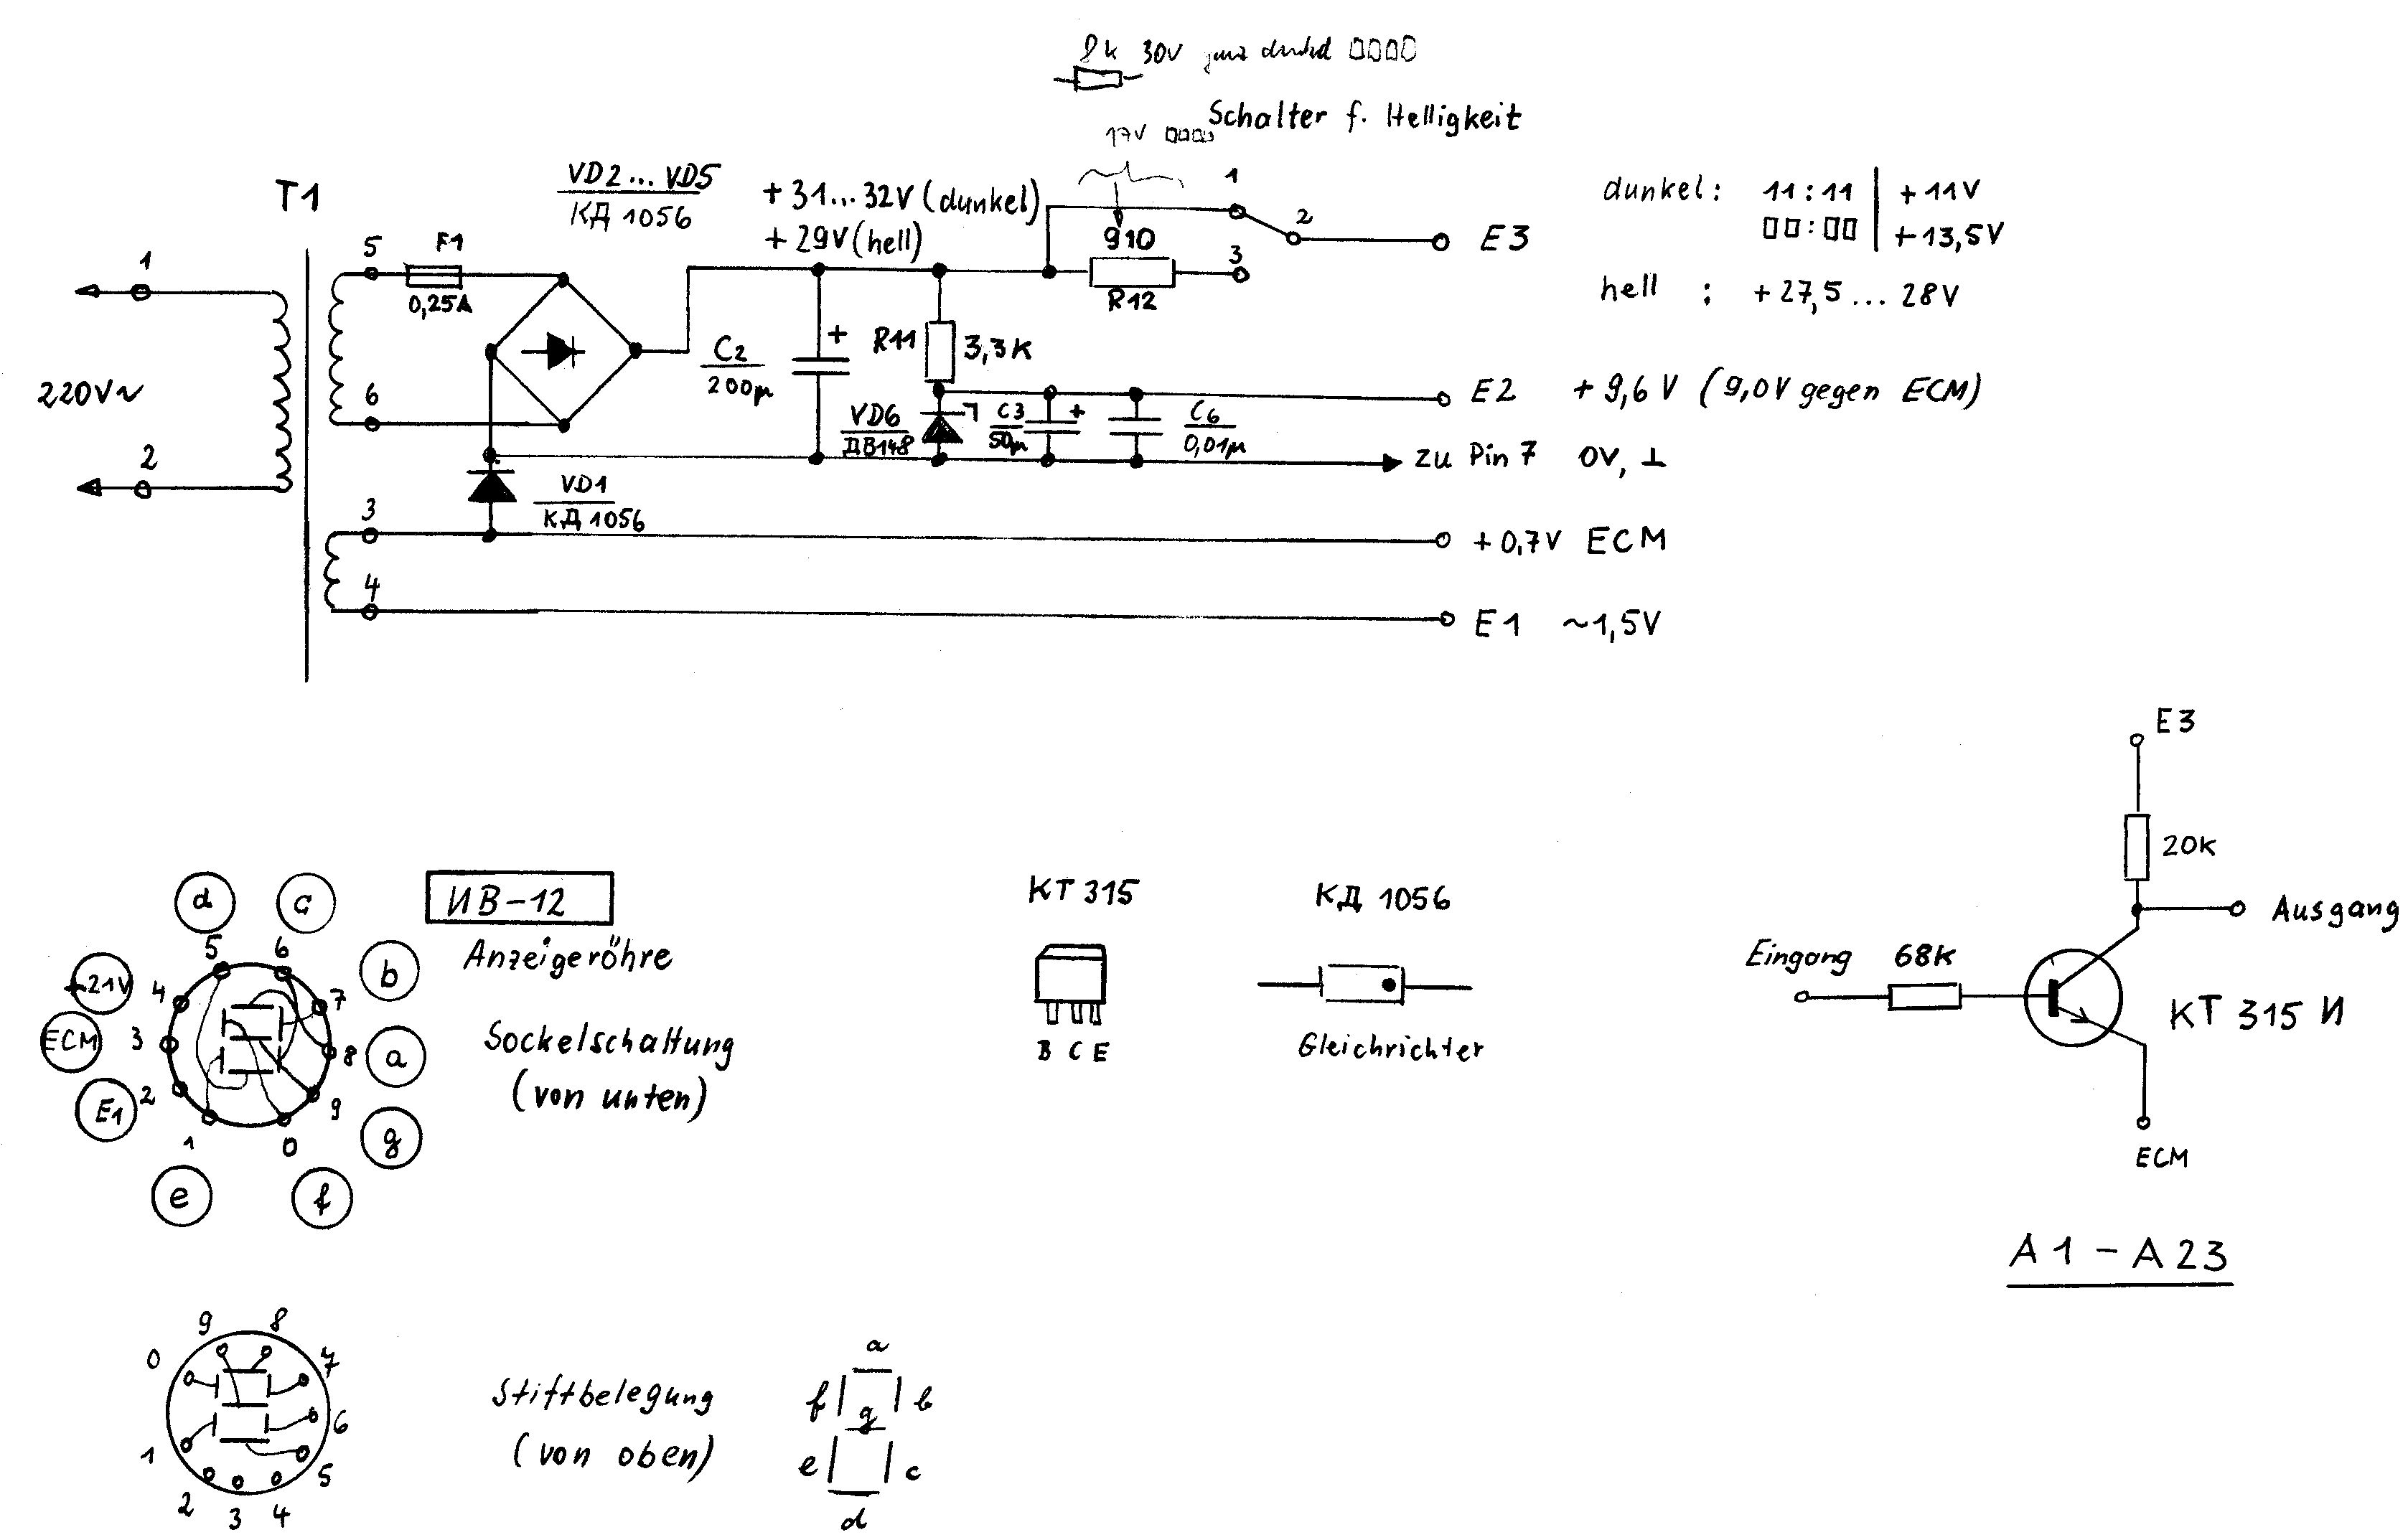 8k 30V ganz dunkel
Schalter f. Helligkeit
17V
T1
VD2...VD5
КД 1056
+ 31...32V (dunkel)
+ 29V (hell)
910
R12
1
2
3
E3
dunkel: 11:11 | +11V
00:00 | +13,5V
hell : +27,5 ... 28V
1
220V~
2
5
F1
0,25A
6
C2
200µ
+
R11
3,3K
E2 + 9,6 V (9,0V gegen ECM)
VD6
ДВ148
C3
50µ
+
C6
0,01µ
zu Pin 7 0V, ⊥
VD1
КД 1056
3
+0,7V ECM
4
E1 ~1,5V
E3
20K
Ausgang
Eingang 68K
КТ 315 И
ECM
A1 – A23
ИВ-12
Anzeigeröhre
Sockelschaltung
(von unten)
d
c
b
a
g
f
e
E1
ECM
+21V
5
6
7
8
9
0
1
2
3
4
КТ 315
B C E
КД 1056
Gleichrichter
9
8
7
6
5
4
3
2
1
0
Stiftbelegung
(von oben)
a
f
g
b
e
c
d